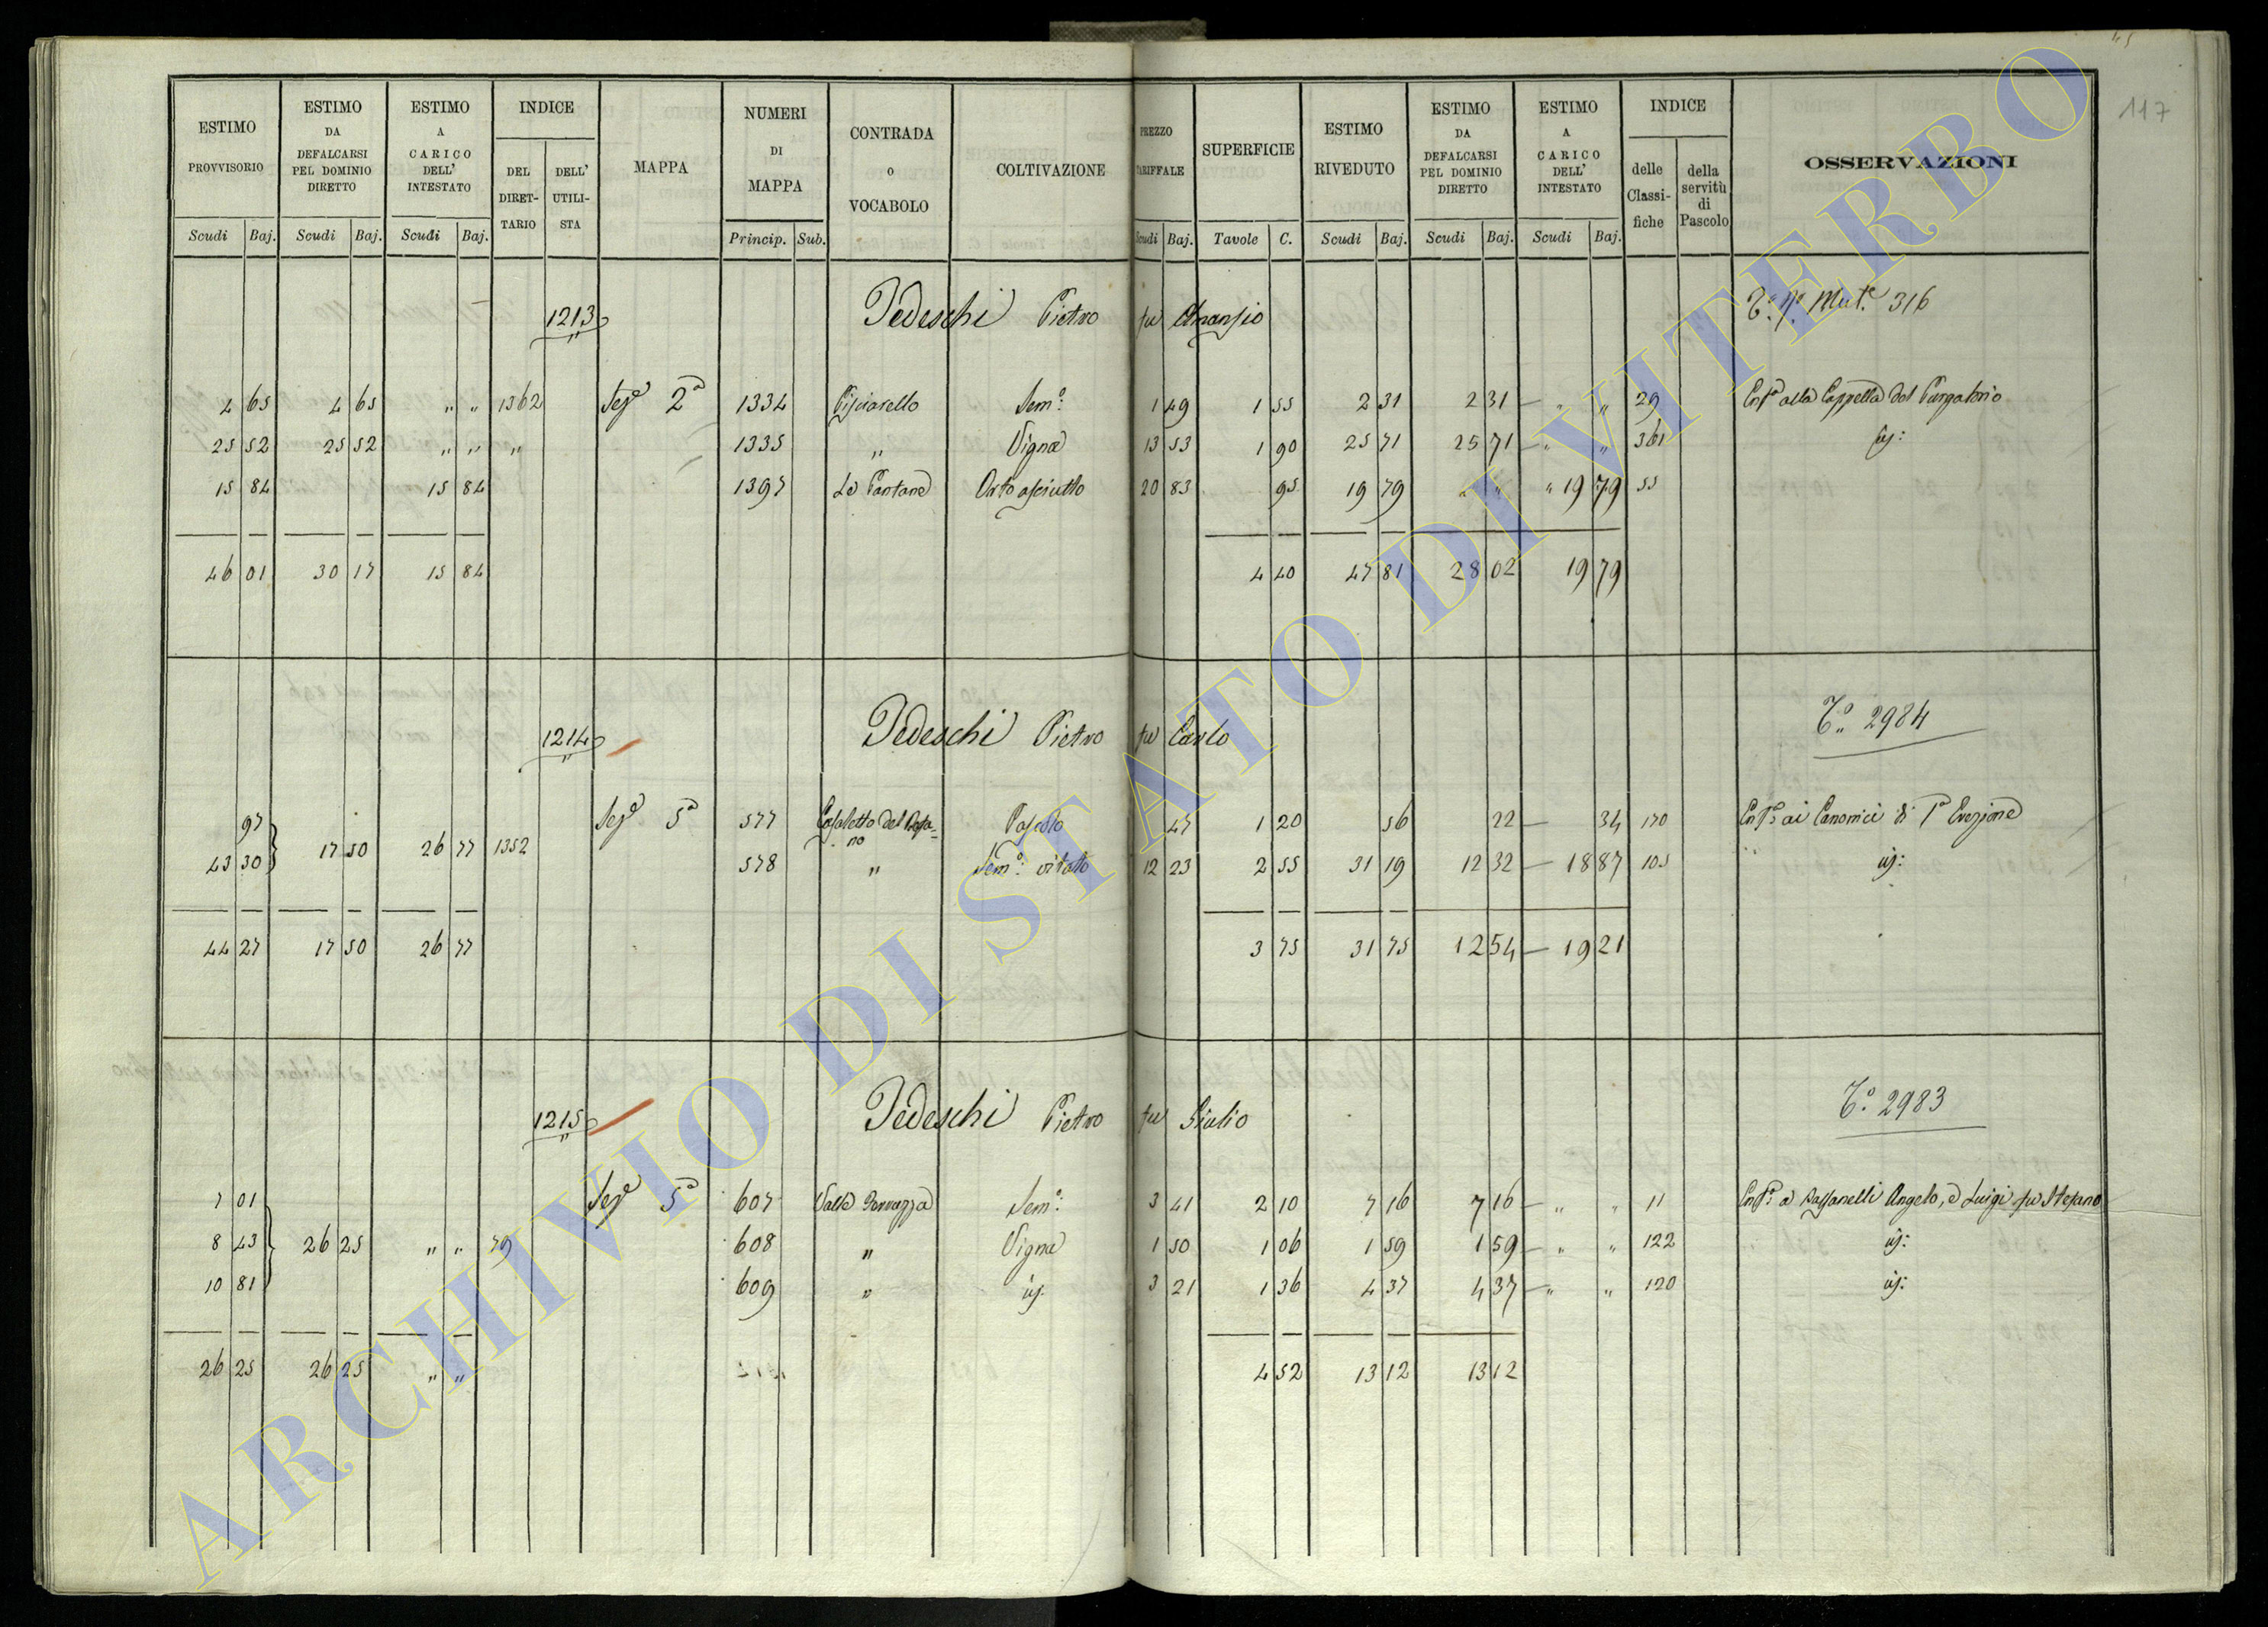 117
ESTIMO PROVVISORIO Scudi Baj.
ESTIMO DA DEFALCARSI PEL DOMINIO DIRETTO Scudi Baj.
ESTIMO A CARICO DELL' INTESTATO Scudi Baj.
INDICE DEL DIRETTARIO DELL' UTILISTA
MAPPA
NUMERI DI MAPPA Princip. Sub.
CONTRADA O VOCABOLO
COLTIVAZIONE
PREZZO TARIFFALE Scudi Baj.
SUPERFICIE Tavole C.
ESTIMO RIVEDUTO Scudi Baj.
ESTIMO DA DEFALCARSI PEL DOMINIO DIRETTO Scudi Baj.
ESTIMO A CARICO DELL' INTESTATO Scudi Baj.
INDICE delle Classifiche della servitù di Pascolo
OSSERVAZIONI
1213 Tedeschi Pietro fu Ananzio Mut.e 316
4 65 4 65 " " 1362 Sez.e 2a 1334 Pisciarello Sem.o 1 49 1 55 2 31 2 31 " " 29 Enf.a alla Cappella del Purgatorio
25 52 25 52 " " " 1335 " Vigna 13 53 1 90 25 71 25 71 " " 361
15 84 15 84 1397 Le Pantane Orto asciutto 20 83 95 19 79 " " " 19 79 55
46 01 30 17 15 84 4 40 47 81 28 02 19 79
1214 Tedeschi Pietro fu Carlo To. 2984
97 Sez.e 5a 577 Casaletto del Passano Pascolo 47 1 20 56 22 34 170 Enf.a ai Canonici di 1a Erezione
43 30 17 50 26 77 1352 578 " Sem.o vitato 12 23 2 55 31 19 12 32 18 87 105 " id:
44 27 17 50 26 77 3 75 31 75 12 54 19 21
1215 Tedeschi Pietro fu Giulio To. 2983
7 01 Sez.e 5a 607 Valle Sem.o 3 41 2 10 7 16 7 16 " " 11 Enf.a a Angelo, e Luigi fu Stefano
8 43 26 25 " " 79 608 " Vigna 1 50 1 06 1 59 1 59 " " 122 id:
10 81 609 " id. 3 21 1 36 4 37 4 37 " " 120 id:
26 25 26 25 " " 4 52 13 12 13 12
ARCHIVIO DI STATO DI VITERBO